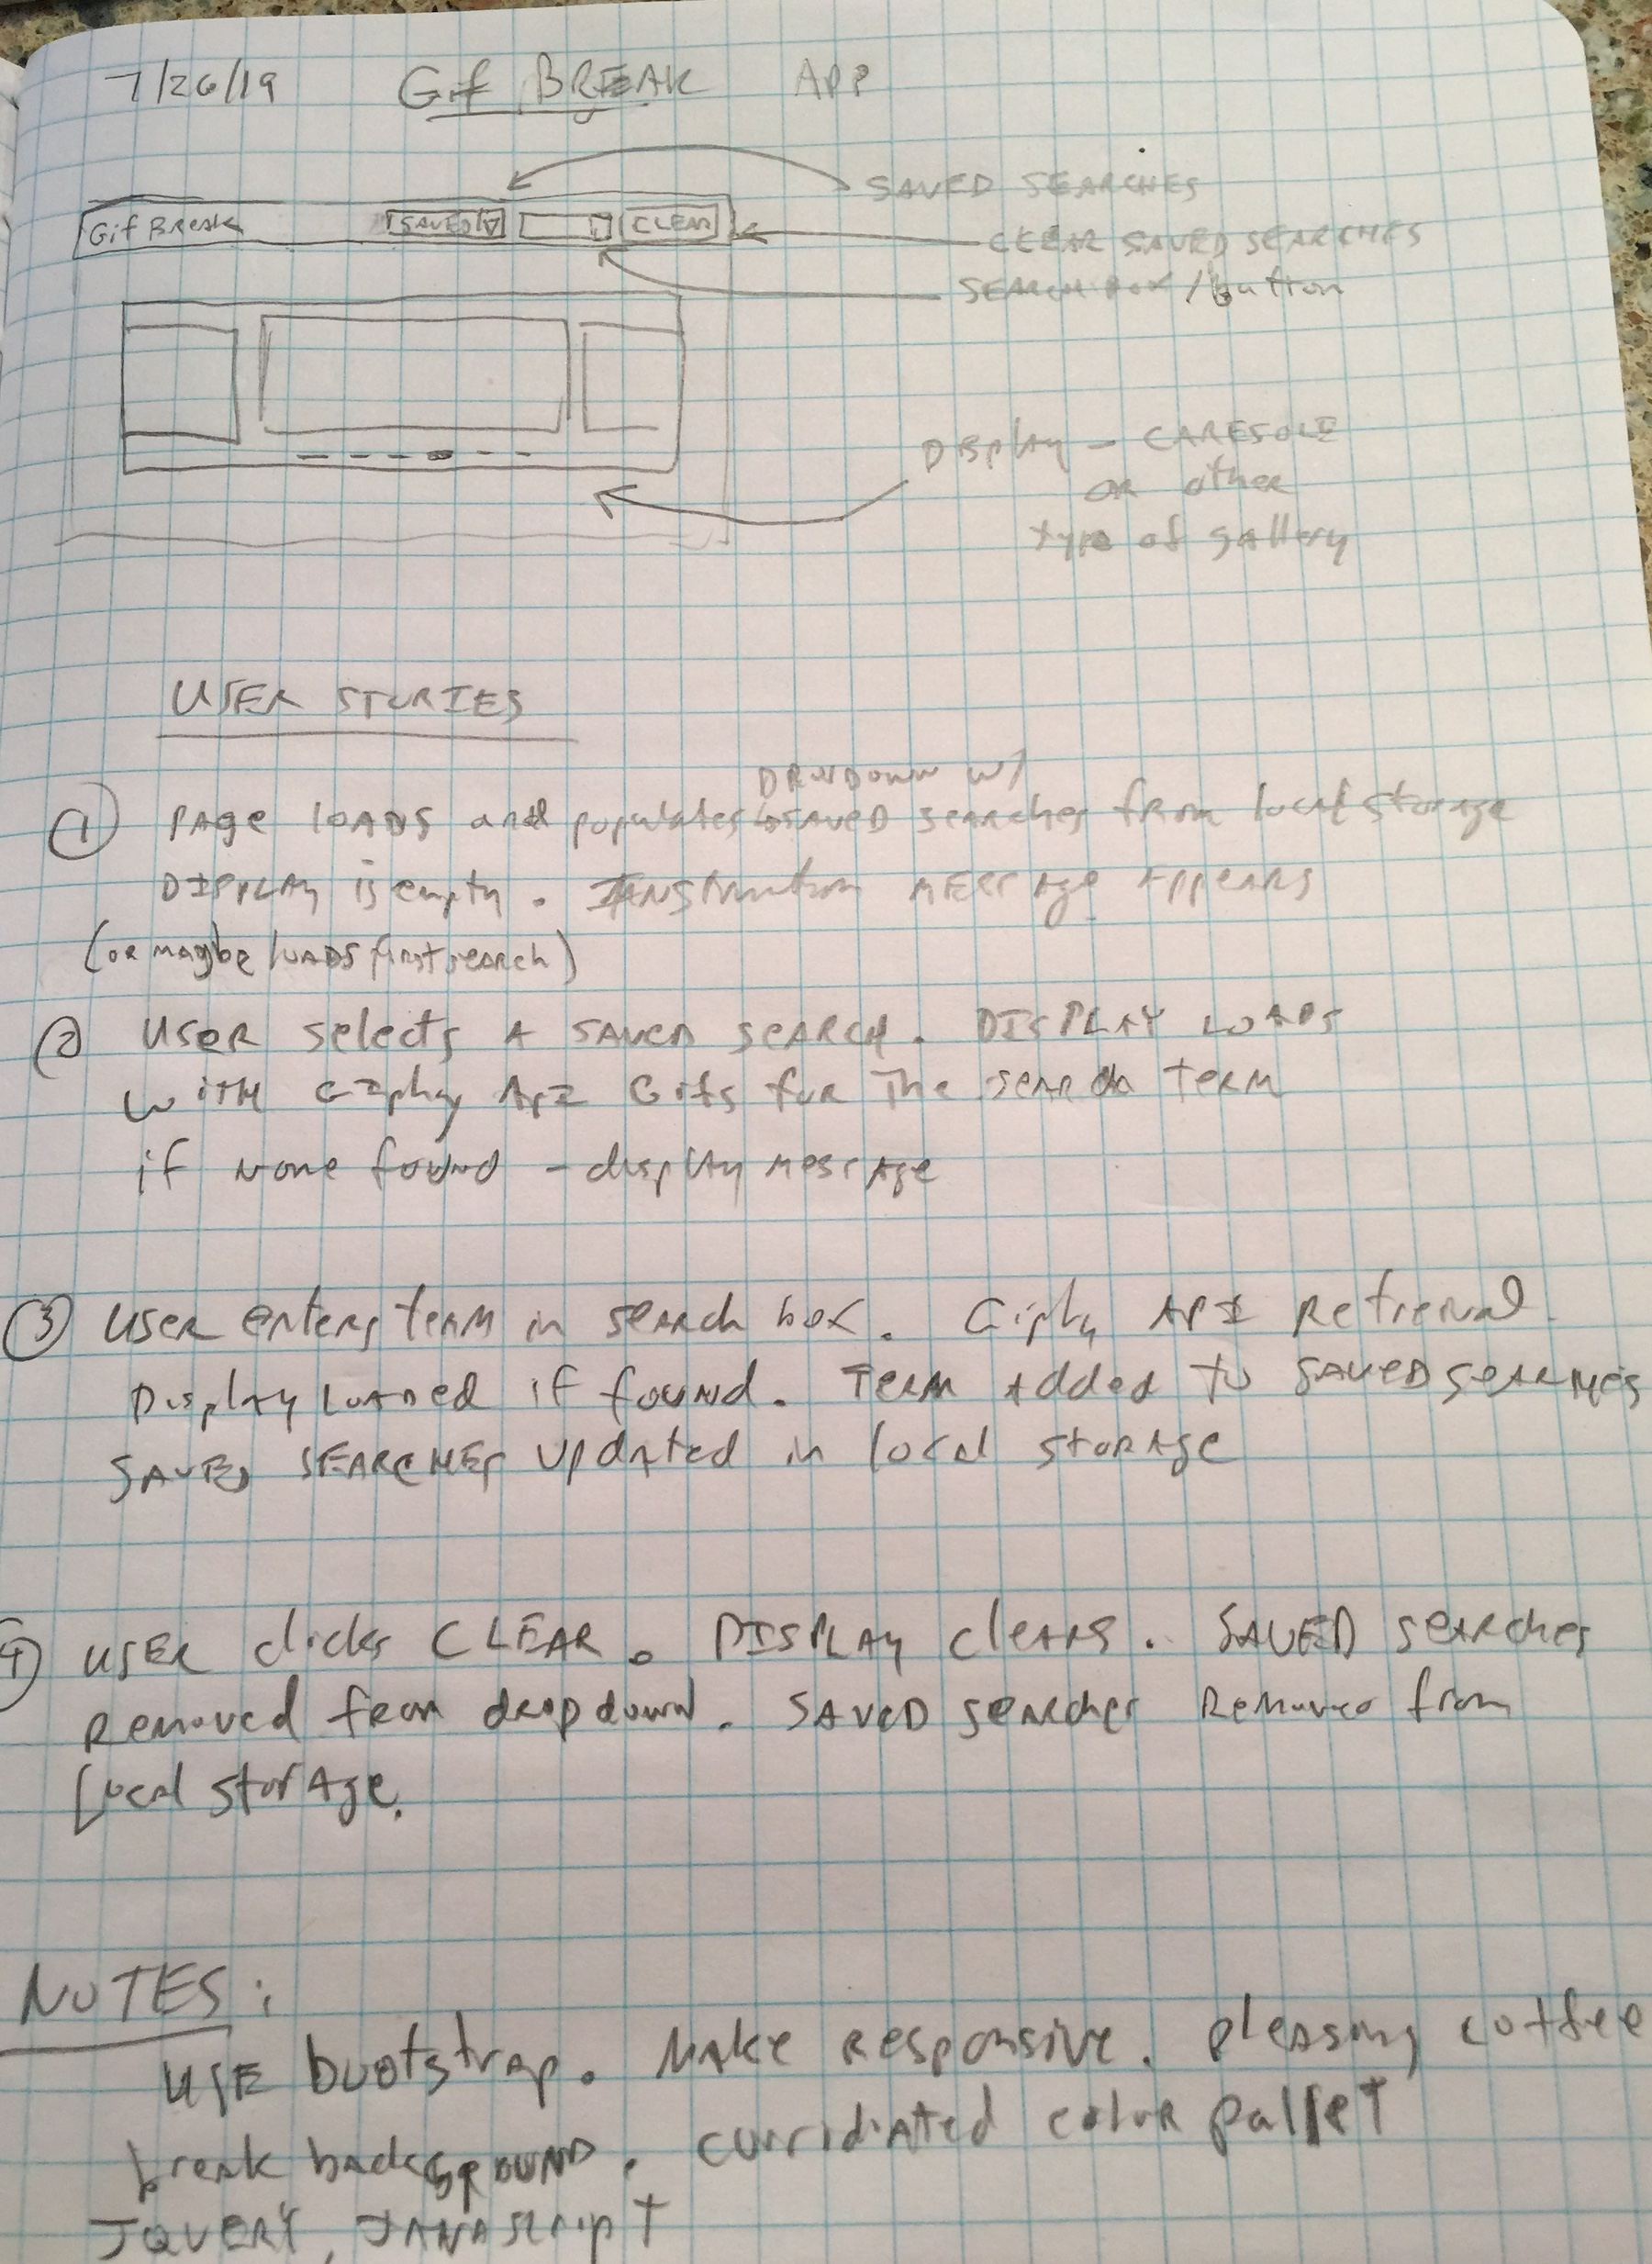 7/26/19 Gif BREAK APP
SAVED SEARCHES
Gif BREAK SAVED CLEAR
CLEAR SAVED SEARCHES
SEARCH BOX / button
DISplay - CARESOLE
OR other
type of gallery
USER STORIES
DROPDOWN W/
① PAge LOADS and populates SAVED searches from local storage
DISPLAY is empty. INStruction MESSAge Appears
(OR maybe LOADS first search)
② USER selects A SAVED SEARCH. DISPLAY LOADS
WITH GIphy API Gifs for The search Term
if None found - display MESSAge
③ USER enters teRM in SEARCH box. Giphy API Retrieval.
DisplAy LOADED if found. TERM Added to SAVED SEARCHES
SAVED SEARCHES updAted in local stoRAge
④ USER clicks CLEAR. DISPLAY cleARS. SAVED seARches
Removed from dropdown. SAVED seARches Removed from
Local storAge.
NOTES:
USE bootstrap. MAke Responsive. pleAsing coffee
breAk backGROUND. cooridiAted coloR palleT
JQUERY, JAVAScripT